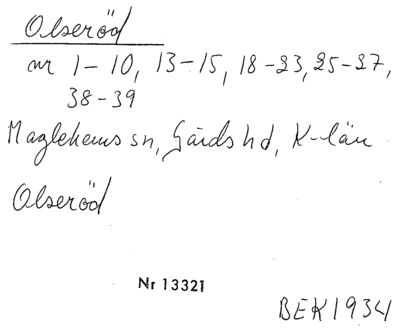 Olseröd
nr 1-10, 13-15, 18-23, 25-27,
38-39
Maglehems sn, Gärds hd, K-län
Olseröd
Nr 13321
BEK 1934